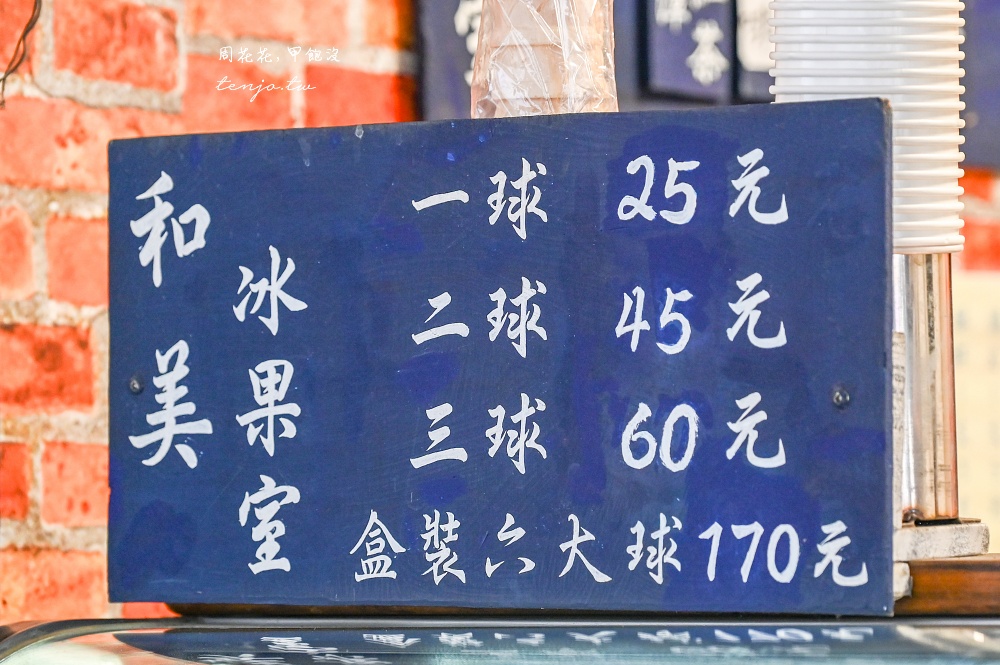 周花花，甲飽沒
tenjo.tw
和美
冰果室
一球 25元
二球 45元
三球 60元
盒裝六大球170元
茶